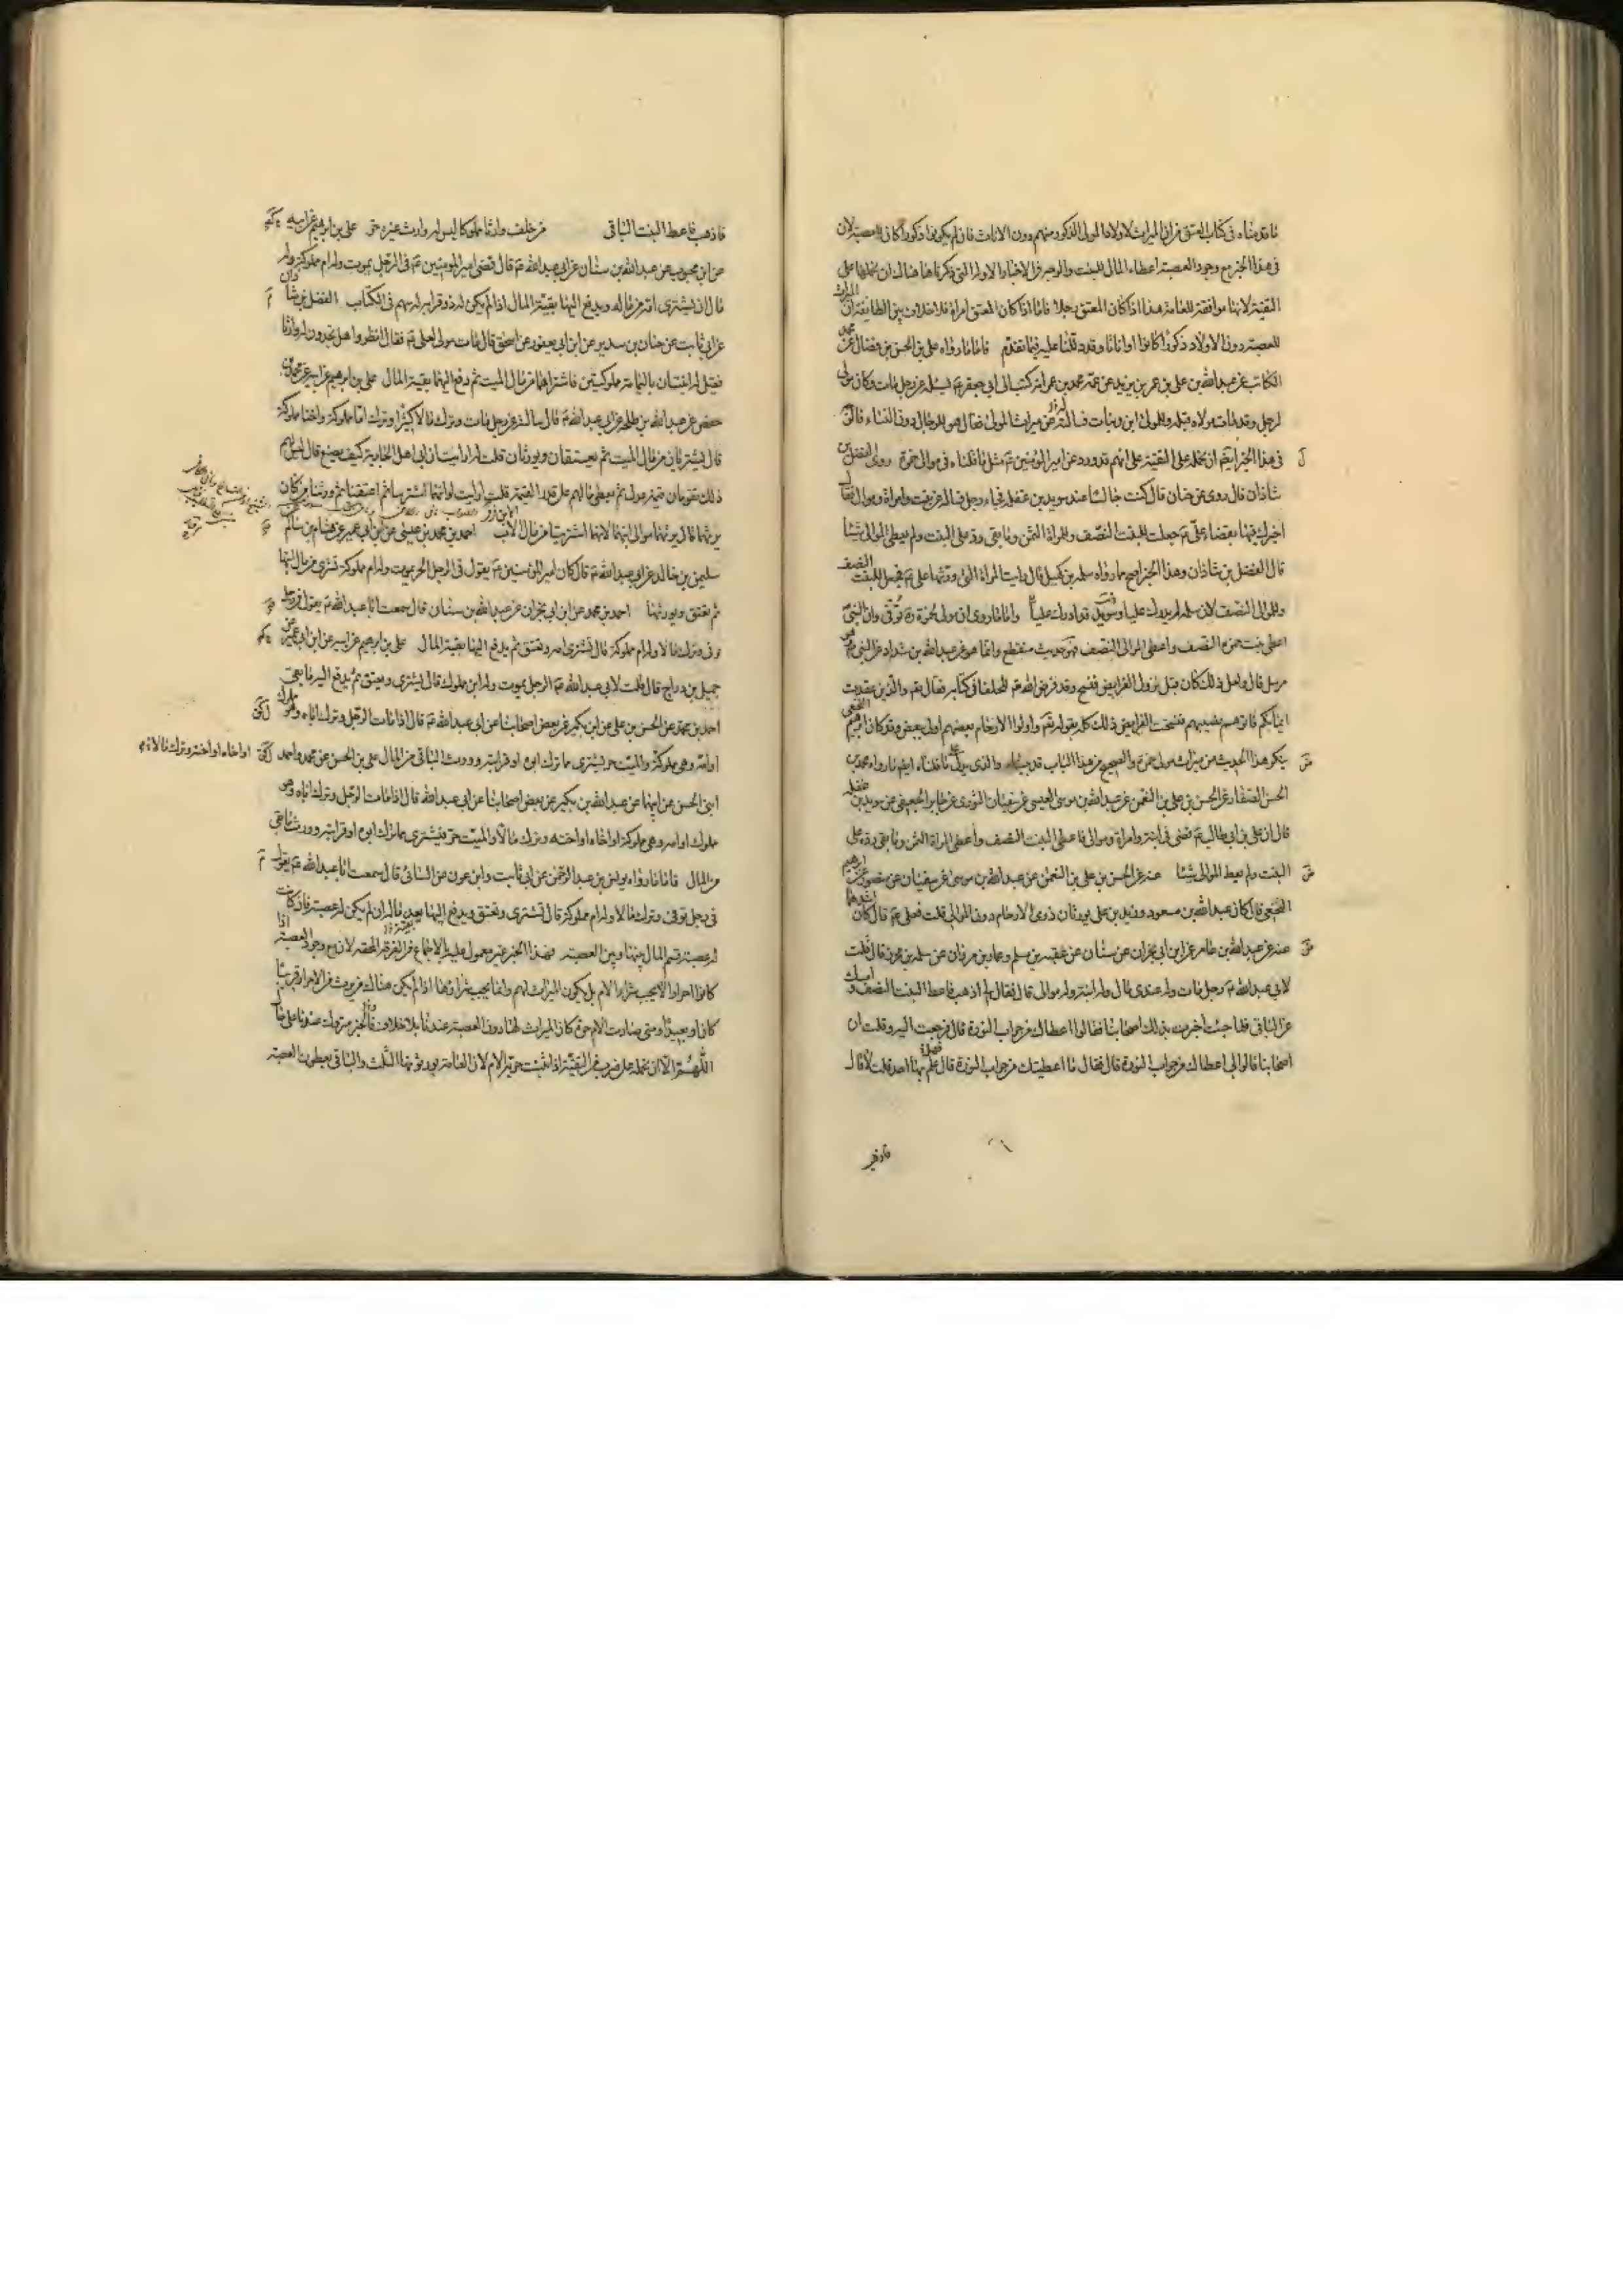 ما قدمناه في كتاب العتق من ان الميراث لاولاد المولى الذكور منهم دون الاناث فان لم يكونوا ذكورا كان للعصبة لان
في هذا الخبر مع وجود العصبة اعطاء المال للبنت والوجه في الاخبار الاولة التي ذكرناها هناك ان نحملها على
التقية لانها موافقة للعامة هذا اذا كان المعتق رجلا فاما اذا كان المعتق امراة فلا خلاف بين الطايفة ان الميراث
للعصبة دون الاولاد ذكورا كانوا او اناثا وقد دللنا عليه فيما تقدم فاما ما رواه علي بن الحسن بن فضال عن محمد
الكاتب عن عبد الله بن علي بن عمر بن يزيد عن عمه محمد بن عمر انه كتب الى ابي جعفر ع يسئله عن رجل مات وكان مولى
لرجل وقد مات مولاه قبله وللمولى ابن وبنات فسالته عن ميراث المولى فقال هو للرجال دون النساء فالوجه
في هذا الخبر ايضا ان نحمله على التقية على انهم قد رووا عن امير المؤمنين ع مثل ما قلناه في موالي حمزة روى الفضل بن
شاذان قال روى عن حنان قال كنت جالسا عند سويد بن غفلة فجاءه رجل فساله عن بنت وامراة وموالي فقال
اخبرك فيها بقضاء علي ع جعل للبنت النصف وللمراة الثمن وما بقي رد على البنت ولم يعط الموالي شيئا
قال الفضل بن شاذان وهذا الخبر اصح مما رواه سلمة بن كهيل قال رايت المراة التي ورثها علي ع فجعل للبنت النصف
وللموالي النصف لان سلمة لم يدرك عليا وسويد قد ادرك عليا واما ما روي ان مولى لحمزة ره توفي وان النبي ص
اعطى بنت حمزة النصف واعطى الموالي النصف فهو حديث منقطع وانما هو عن عبد الله بن شداد عن النبي ص وهو
مرسل قال ولعل ذلك كان قبل نزول الفرايض فنسخ وقد فرض الله تعالى للحلفا في كتابه فقال تعالى والذين عقدت
ايمانكم فاتوهم نصيبهم فنسخت الفرايض ذلك كله بقوله تعالى واولوا الارحام بعضهم اولى ببعض وقد كان ابرهيم النخعي
ينكر هذا الحديث من ميراث مولى حمزة والصحيح من هذا الباب قد بيناه والذي يدل على ما قلناه ايضا ما رواه محمد بن
الحسن الصفار عن الحسن بن علي بن النعمن عن عبد الله بن موسى العبسي عن سفيان الثوري عن جابر الجعفي عن سويد بن غفلة
قال ان علي بن ابي طالب ع قضى في ابنة وامراة وموالي فاعطى البنت النصف واعطى المراة الثمن وما بقي رده على
البنت ولم يعط الموالي شيئا عنه عن الحسن بن علي بن النعمن عن عبد الله بن موسى عن سفيان عن منصور عن ابرهيم
النخعي قال كان عبد الله بن مسعود وزيد بن علي يورثان ذوي الارحام دون الموالي قلت فعلي ع قال كان اشدهما
عنه عن عبد الله بن عامر عن ابن ابي نجران عن سنان عن عقبة بن مسلم وعمار بن مروان عن سلمة بن محرز قال قلت
لابي عبد الله ع رجل مات وله عندي مال وله ابنة وله موالي قال فقال لي اذهب فاعط البنت النصف وامسك
عن الباقي فلما جئت اخبرت بذلك اصحابنا فقالوا اعطاك من جراب النورة قال فرجعت اليه وقلت ان
اصحابنا قالوا لي اعطاك من جراب النورة قال فقال ما اعطيتك من جراب النورة قال علم بهذا احد قلت لا قال
فاذهب
فاذهب فاعط البنت الباقي من خلف وارثا مملوكا ليس له وارث غيره حر علي بن ابراهيم عن ابيه
عن ابن محبوب عن عبد الله بن سنان عن ابي عبد الله ع قال قضى امير المؤمنين ع في الرجل يموت وله ام مملوكة وله
مال ان تشترى امه من ماله ويدفع اليها بقية المال اذا لم يكن له ذو قرابة له سهم في الكتاب الفضل بن شاذان
عن ابي ثابت عن حنان بن سدير عن ابن ابي يعفور عن اسحق قال مات مولى لعلي ع فقال انظروا هل تجدون له وارثا
فقيل له ابنتان باليمامة مملوكتين فاشتراهما من مال الميت ثم دفع اليهما بقية المال علي بن ابرهيم عن ابيه عن محمد بن
حفص عن عبد الله بن طلحة عن ابي عبد الله ع قال سالته عن رجل مات وترك مالا كثيرا وترك اما مملوكة واختا مملوكة
قال يشتريان من مال الميت ثم يعتقان ويورثان قلت ارايت ان ابى اهل الجارية كيف يصنع قال ليس لهم
ذلك يقومان قيمة عدل ثم يعطى مالهم على قدر القيمة قلت ارايت لو انهما اشتريا ثم اعتقتا ثم ورثتا من كان
يرثهما قال يرثهما موالي ابنهما لانهما اشتريتا من مال الابن احمد بن محمد بن عيسى عن ابن ابي عمير عن هشام بن سالم عن
سليمن بن خالد عن ابي عبد الله ع قال كان امير المؤمنين ع يقول في الرجل الحر يموت وله ام مملوكة تشترى من مال ابنها
ثم تعتق ويورثها احمد بن محمد عن ابن ابي نجران عن عبد الله بن سنان قال سمعت ابا عبد الله ع يقول في رجل
توفي وترك مالا وله ام مملوكة قال تشترى امه وتعتق ثم يدفع اليها بقية المال علي بن ابرهيم عن ابيه عن ابن ابي عمير عن
جميل بن دراج قال قلت لابي عبد الله ع الرجل يموت وله ابن مملوك قال يشترى ويعتق ثم يدفع اليه ما بقي
احمد بن محمد عن الحسن بن علي عن ابن بكير عن بعض اصحابنا عن ابي عبد الله ع قال اذا مات الرجل وترك اباه وهو مملوك
او امه وهي مملوكة والميت حر يشترى مما ترك ابوه او قرابته وورث الباقي من المال علي بن الحسن عن محمد واحمد
او اخاه او اخته وترك مالا
ابني الحسن عن ابيهما عن عبد الله بن بكير عن بعض اصحابنا عن ابي عبد الله قال اذا مات الرجل وترك اباه وهو
مملوك او امه وهي مملوكة او اخاه او اخته وترك مالا والميت حر يشترى مما ترك ابوه او قرابته وورث ما بقي
من المال فاما ما رواه يونس بن عبد الرحمن عن ابي ثابت وابن عون عن السائي قال سمعت ابا عبد الله ع يقول
في رجل توفي وترك مالا وله ام مملوكة قال تشترى وتعتق ويدفع اليها بعد ماله ان لم يكن له عصبة فان كانت
له عصبة قسم المال بينها وبين العصبة فهذا الخبر غير معمول عليه بالاجماع من الفرقة المحقة لان مع وجود العصبة اذا
كانوا احرارا لا يجب شراء الام بل يكون الميراث لهم وانما يجب شراؤها اذا لم يكن هناك من يرث من الاحرار قريبا
كان او بعيدا ومتى صارت الام حرة كان الميراث لها دون العصبة عندنا بلا خلاف فالخبر متروك عندنا على كل حال
اللهم الا ان نحمله على ضرب من التقية اذا ثبت حرية الام لان العامة يورثونها الثلث والباقي يعطون العصبة